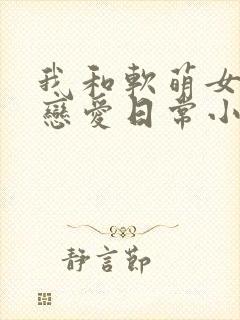 我和軟萌女
戀愛日常小
靜言節